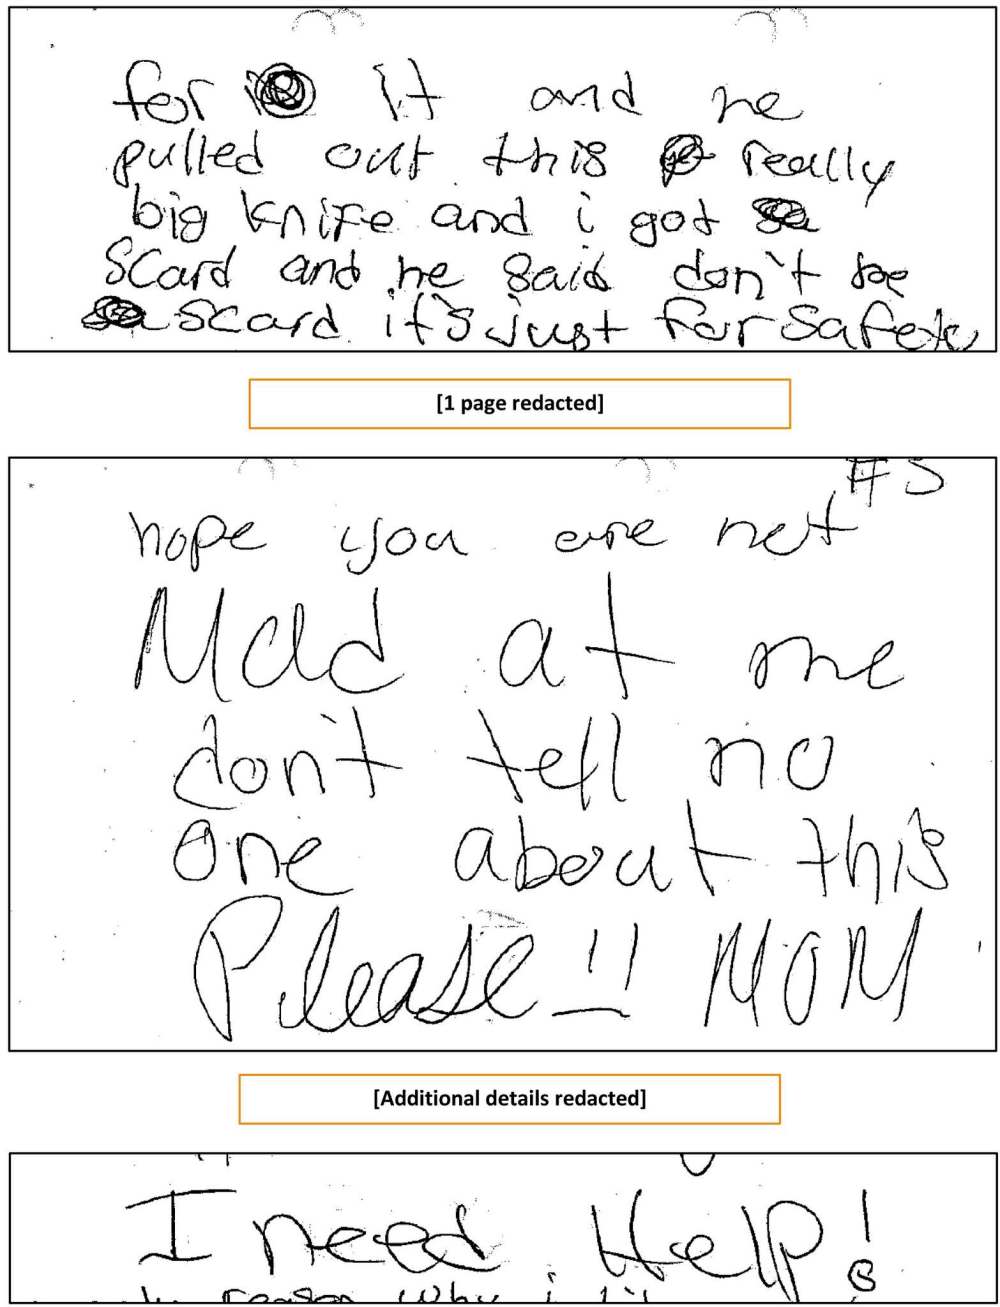 for it and he
pulled out this really
big knife and i got
scard and he said don't be
scard it's just for safete
[1 page redacted]
#5
hope you are not
Mad at me
don't tell no
one about this
Please!! MOM
[Additional details redacted]
I need Help!
reason why i